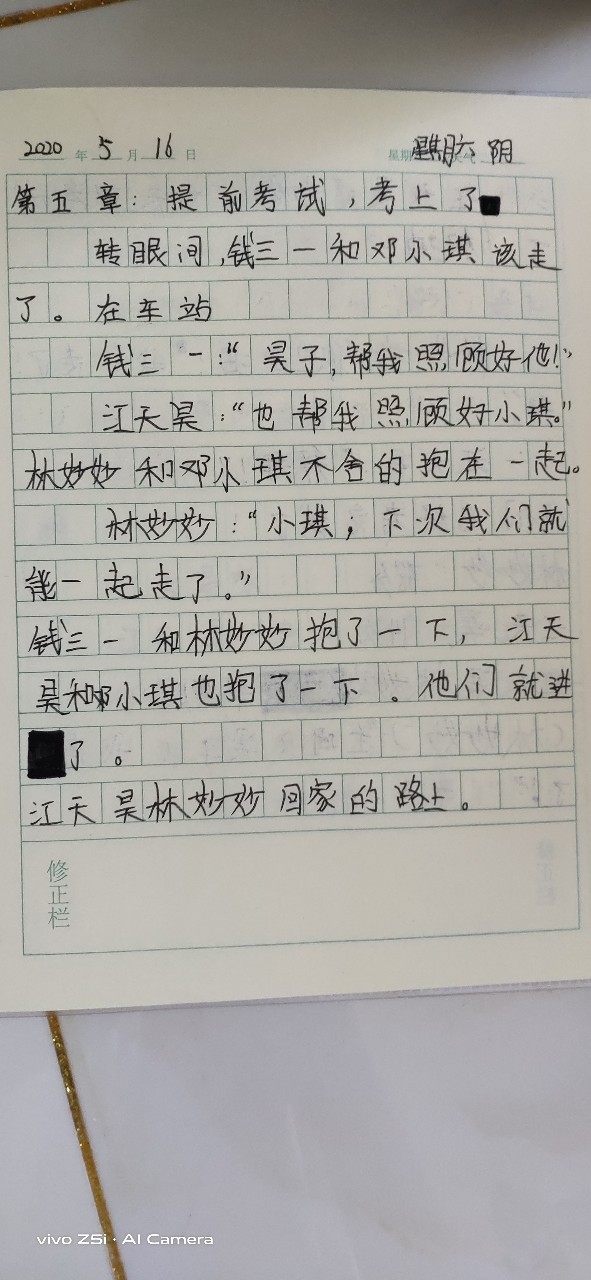 2020 年 5 月 16 日 星期六 阴
第五章：提前考试，考上了
转眼间，钱三一和邓小琪该走
了。在车站
钱三一：“吴子，帮我照顾好他！”
江天吴：“也帮我照顾好小琪。”
林妙妙和邓小琪不舍的抱在一起。
林妙妙：“小琪；下次我们就
能一起走了。”
钱三一和林妙妙抱了一下，江天
吴和邓小琪也抱了一下。他们就进
了。
江天吴林妙妙回家的路上。
修正栏
vivo Z5i · AI Camera